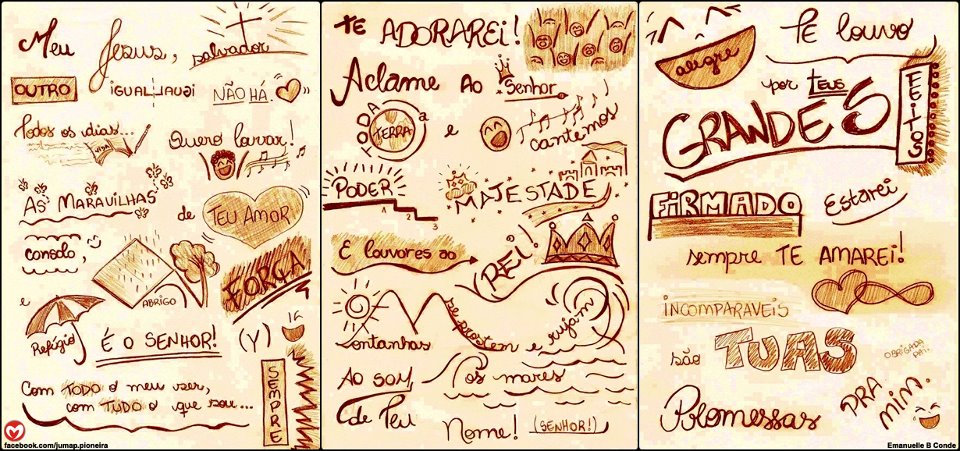 Meu Jesus, salvador
OUTRO igual NÃO HÁ.
Todos os dias...
Quero louvar!
AS MARAVILHAS
de TEU AMOR
consolo,
ABRIGO
FORÇA
e Refúgio
É O SENHOR!
(Y)
Com TODO o meu ser,
com TUDO o que sou...
SEMPRE
facebook.com/jumap.pioneira
TE ADORAREI!
Aclame Ao Senhor
TODA a TERRA e cantemos
PODER
1 2 3
MAJESTADE
E louvores ao
REI!
Montanhas
se prostem e rujam
Os mares
AO SOM
de Teu
Nome! (SENHOR!)
alegre
TE louvo
por teus
GRANDES
FEITOS
FIRMADO
Estarei
sempre TE AMAREI!
INCOMPARAVEIS
são TUAS
OBRIGADA PAI.
Promessas
PRA MIM.
Emanuelle B Conde